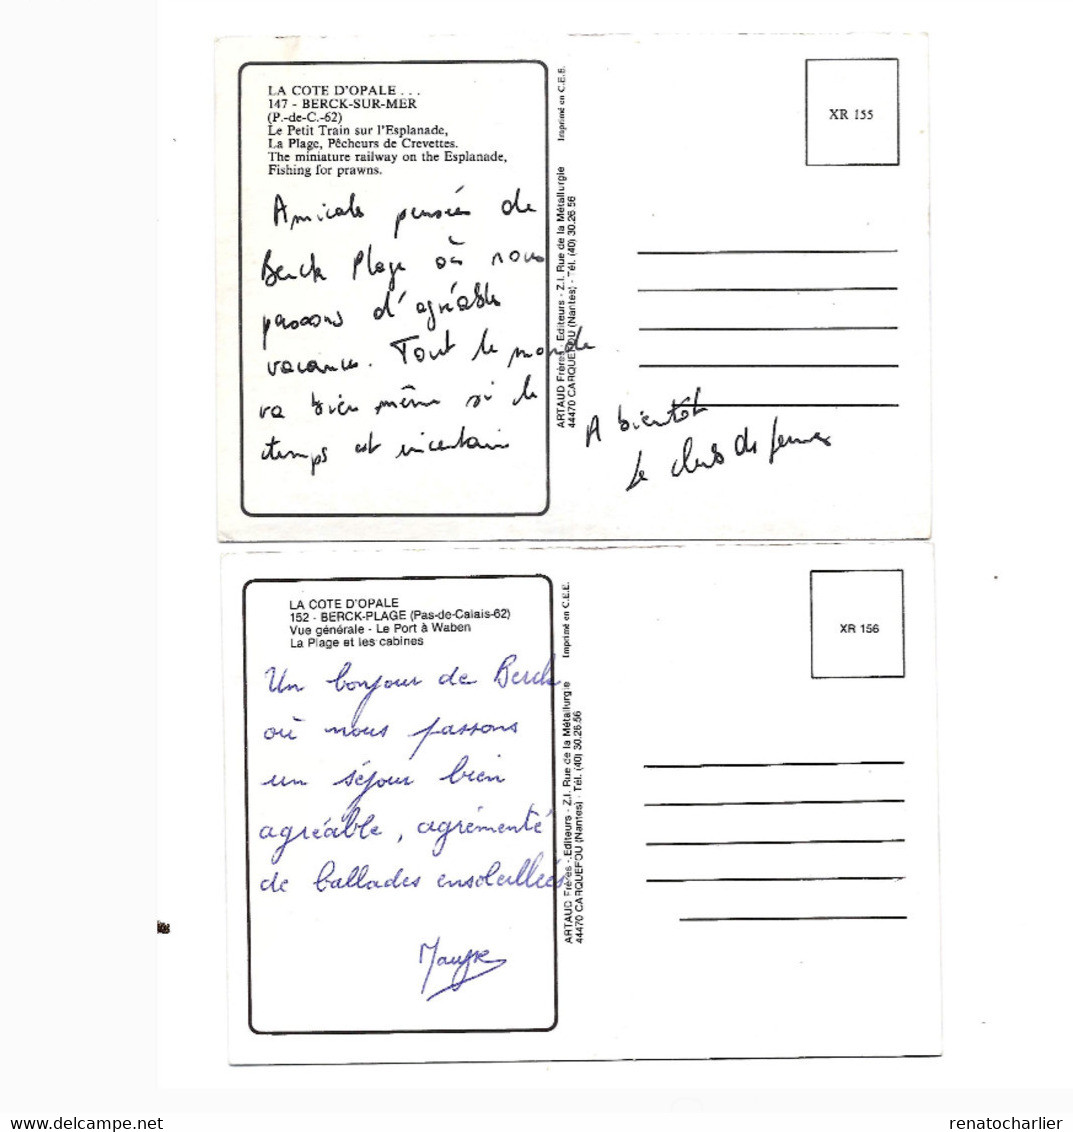 LA COTE D'OPALE . . .
147 - BERCK-SUR-MER
(P.-de-C.-62)
Le Petit Train sur l'Esplanade,
La Plage, Pêcheurs de Crevettes.
The miniature railway on the Esplanade,
Fishing for prawns.
Amicales pensées de
Berck Plage où nous
passons d'agréables
vacances. Tout le monde
va bien même si le
temps est incertain
A bientôt
Le
ARTAUD Frères - Editeurs - Z.I. Rue de la Métallurgie Imprimé en C.E.E.
44470 CARQUEFOU (Nantes) - Tél. (40) 30.26.56
XR 155
LA COTE D'OPALE
152 - BERCK-PLAGE (Pas-de-Calais-62)
Vue générale - Le Port à Waben
La Plage et les cabines
Un bonjour de Berck
où nous passons
un séjour bien
agréable, agrémenté
de ballades ensoleillées
ARTAUD Frères - Editeurs - Z.I. Rue de la Métallurgie Imprimé en C.E.E.
44470 CARQUEFOU (Nantes) - Tél. (40) 30.26.56
XR 156
www.delcampe.net
renatocharlier